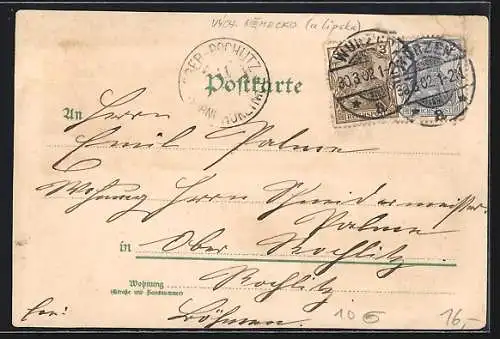 VÝCH. NĚMECKO (u Lipska)
OBER-ROCHLITZ
WURZEN
30.3.02.1-
* a
WURZEN
02.1-2N
* a
Postkarte
An Herrn
Emil Palme
Wohnung Herrn Schneidermeister
Palme
in Ober Rochlitz
Wohnung
(Straße und Hausnummer)
Rochlitz
frei! Böhmen.
10 16,-